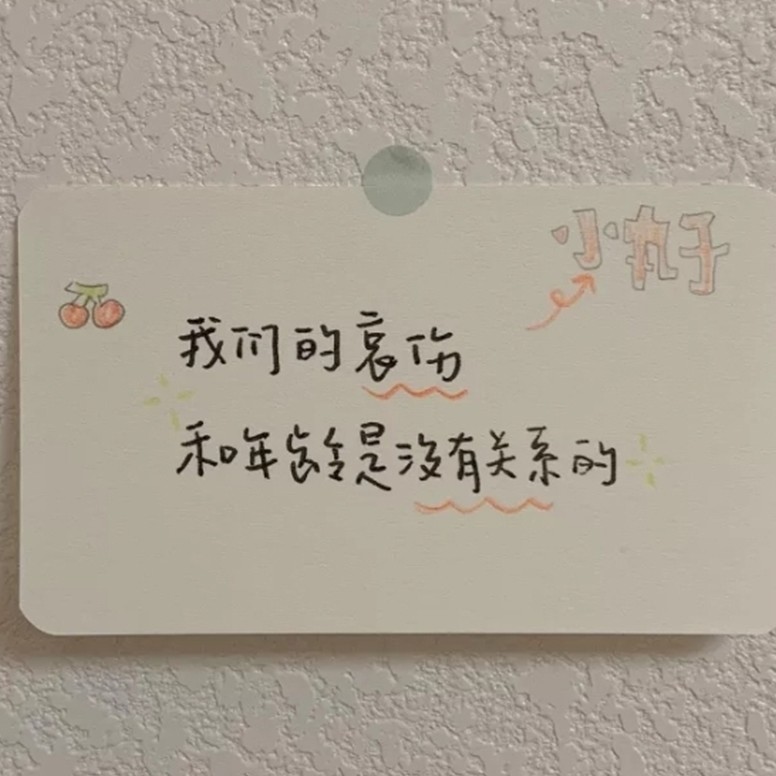 小丸子
我们的哀伤
和年龄是没有关系的